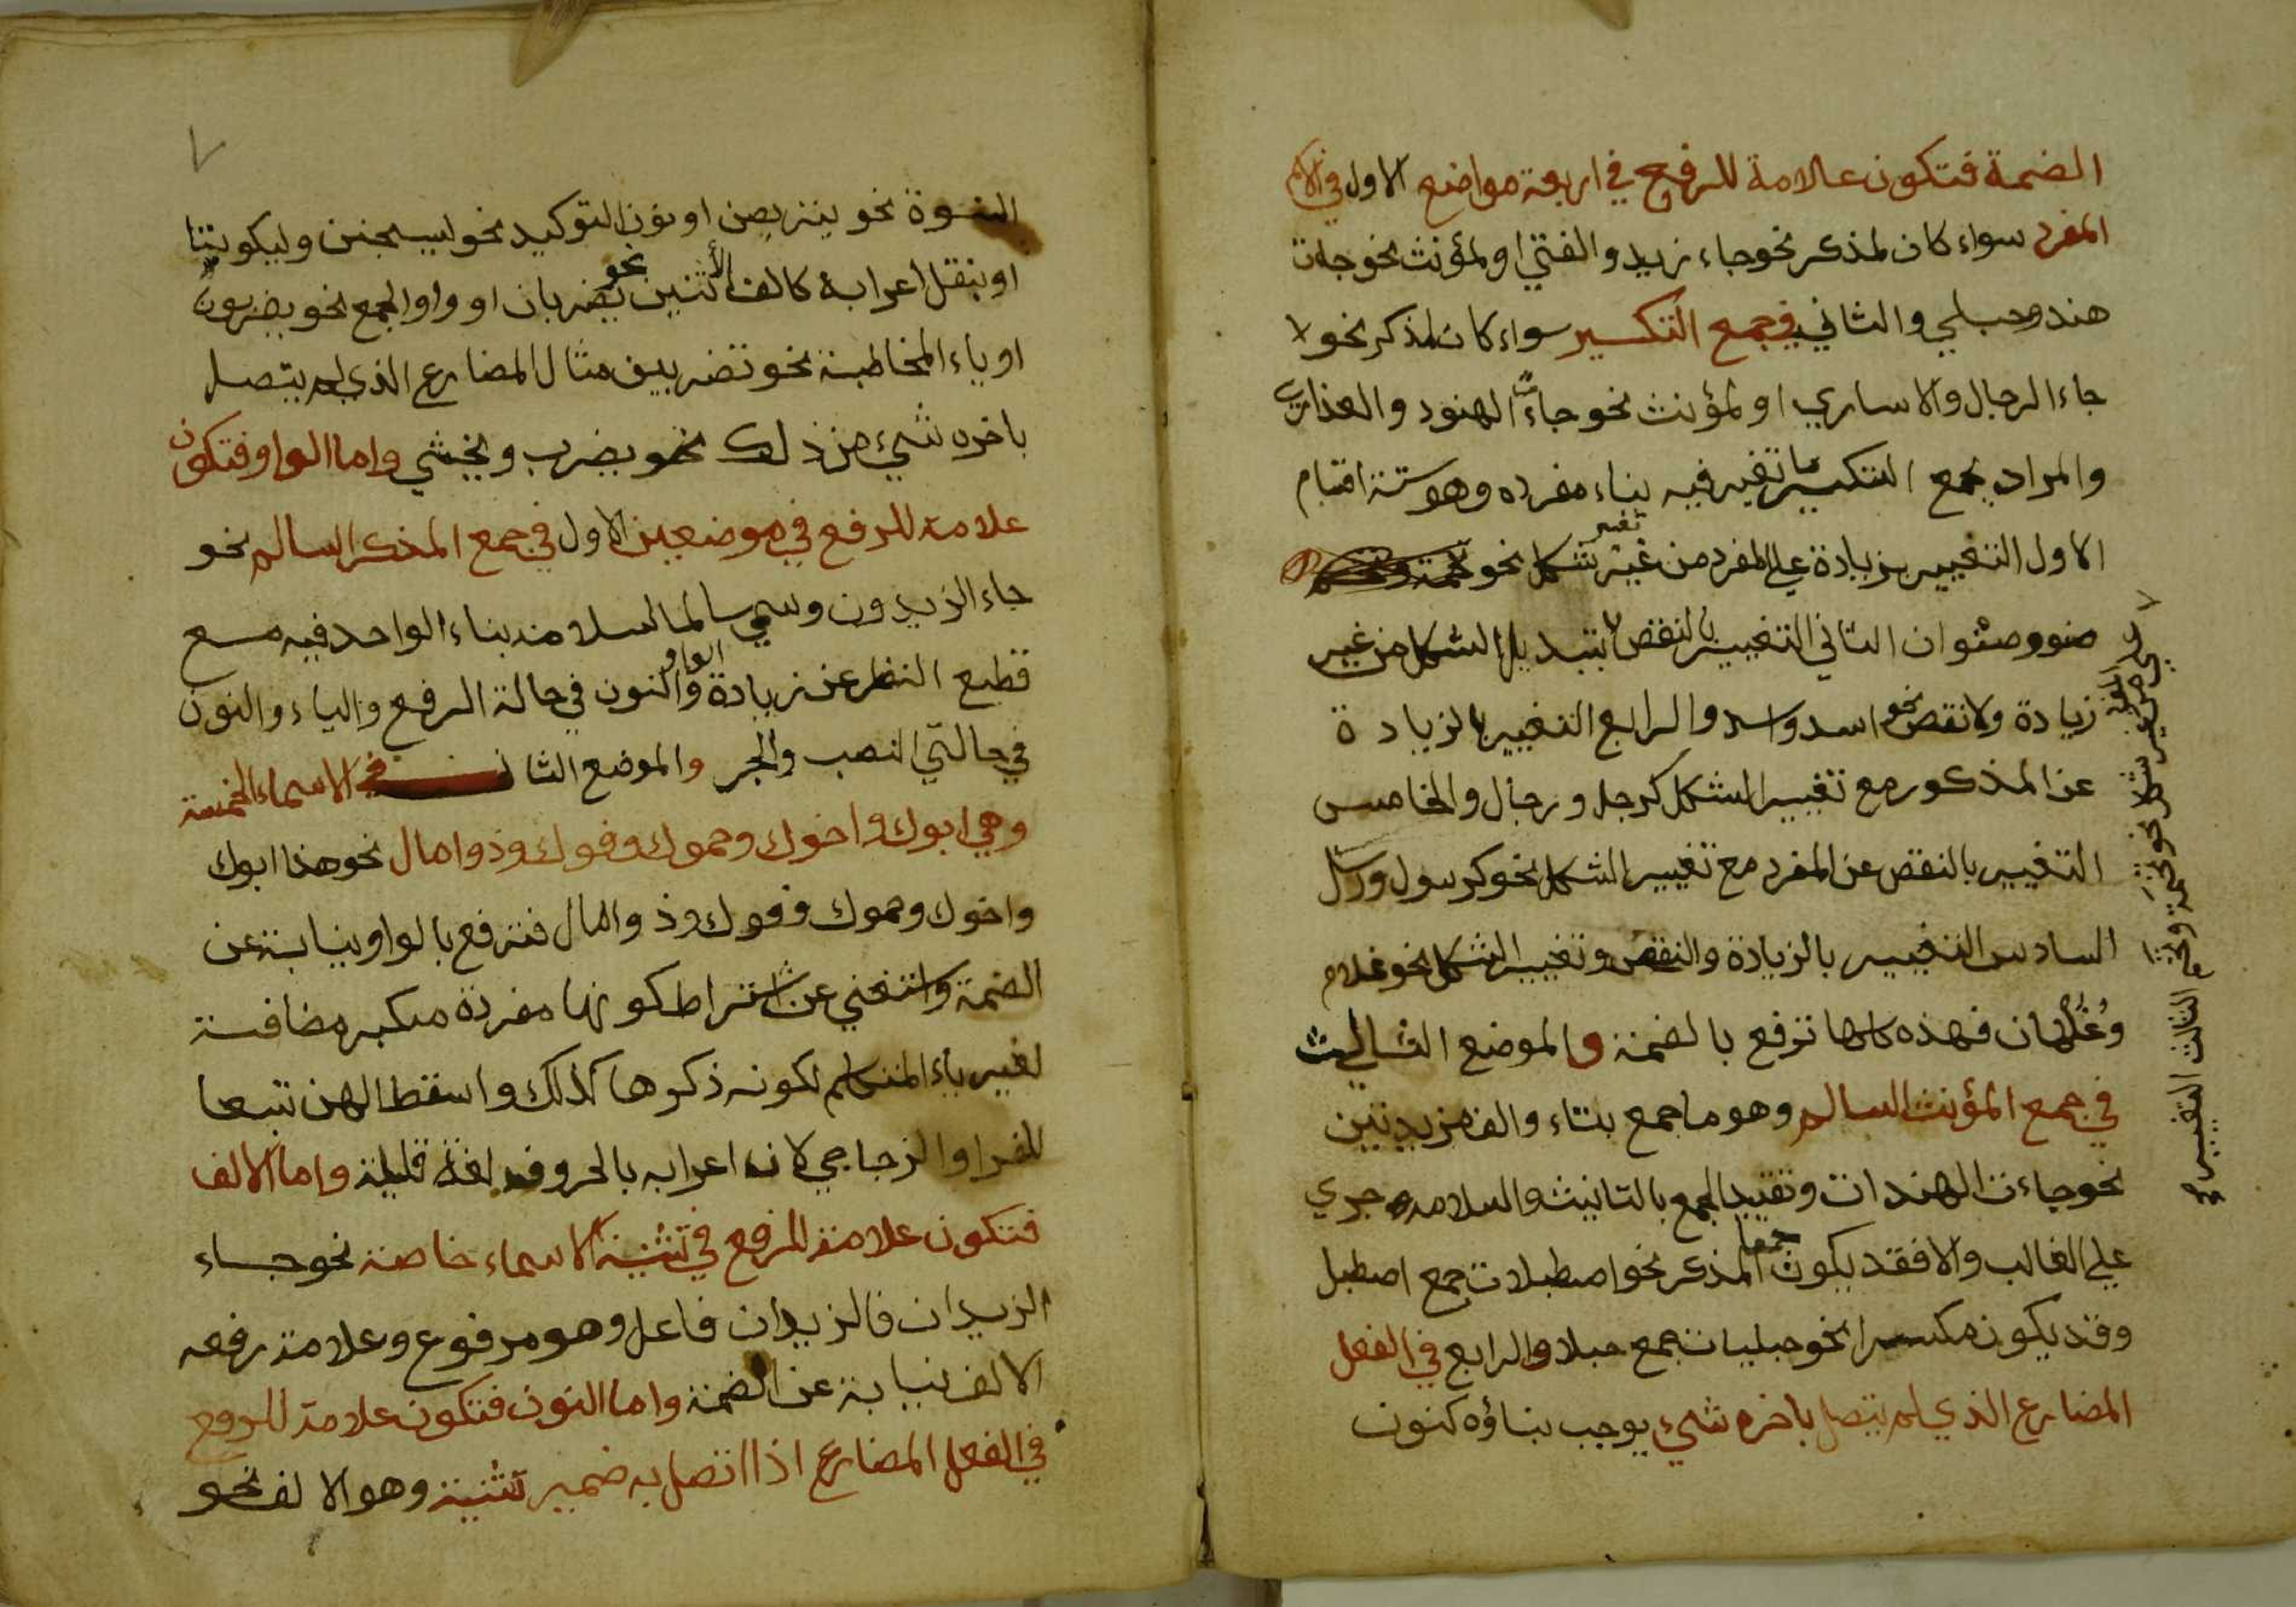 الضمة فتكون علامة للرفع في اربعة مواضع الاول في الاسم
المفرد سواء كان لمذكر نحو جاء زيد والفتي او لمؤنث نحو جاءت
هند وحبلي والثاني في جمع التكسير سواء كان لمذكر نحو
جاء الرجال والاساري او لمؤنث نحو جاءت الهنود والعذاري
والمراد بجمع التكسير ما تغير فيه بناء مفرده وهو ستة اقسام
الاول التغيير بزيادة علي المفرد من غير تغير شكل نحو
صنو وصنوان الثاني التغيير بالنقص لا بتبديل الشكل من غير
زيادة ولا نقص نحو اسد واسد والرابع التغيير بالزيادة
عن المذكور مع تغيير الشكل كرجل ورجال والخامس
التغيير بالنقص عن المفرد مع تغيير الشكل نحو كرسول ورسل
السادس التغيير بالزيادة والنقص وتغيير الشكل نحو غلام
وغلمان فهذه كلها ترفع بالضمة والموضع الثالث
في جمع المؤنث السالم وهو ما جمع بتاء والف مزيدتين
نحو جاءت الهندات وتقييد الجمع بالتانيث والسلامه جري
علي الغالب والا فقد يكون جمعا المذكر نحو اصطبلات جمع اصطبل
وقد يكون مكسرا نحو حبليات جمع حبلا والرابع في الفعل
المضارع الذي لم يتصل باخره شيء يوجب بناؤه كنون
نحو تخمة وتخم الثالث التغيير
النسوة نحو يتربصن او نون التوكيد نحو ليسجنن وليكونتا
او ينقل اعرابه كالف الأثنين نحو يضربان او واو الجمع نحو يضربون
او ياء المخاطبة نحو تضربين مثال المضارع الذي لم يتصل
باخره شيء من ذلك نحو يضرب ويخشي واما الواو فتكون
علامة للرفع في موضعين الاول في جمع المذكر السالم نحو
جاء الزيدون وسمي سالما لسلامة بناء الواحد فيه مع
قطع النظر عن زيادة الواو والنون في حالة الرفع والياء والنون
في حالتي النصب والجر والموضع الثاني في الاسماء الخمسة
وهي ابوك واخوك وحموك وفوك وذوا مال نحو هذا ابوك
واخوك وحموك وفوك وذوا مال فترفع بالواو نيابة عن
الضمة واستغني عن اشتراط كونها مفردة مكبره مضافة
لغير ياء المتكلم لكونه ذكرها كذلك واسقط الهن تبعا
للفرا والزجاجي لانه اعرابه بالحروف لغة قليلة واما الالف
فتكون علامة للرفع في تثنية الاسماء خاصة نحو جاء
الزيدان فالزيدان فاعل وهو مرفوع وعلامة رفعه
الالف نيابة عن الضمة واما النون فتكون علامة للرفع
في الفعل المضارع اذا اتصل به ضمير تثنية وهو الالف نحو